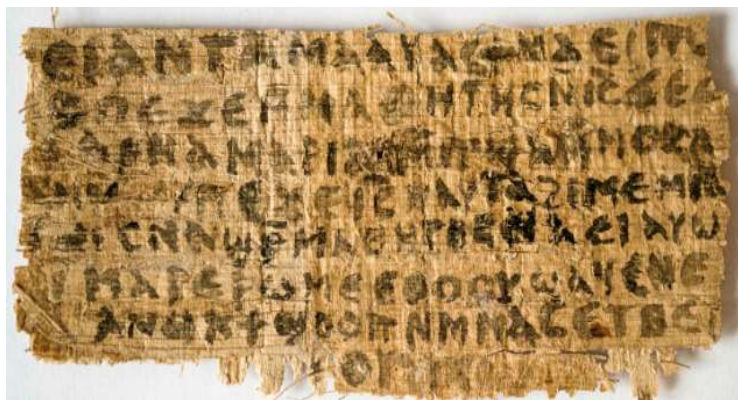 ⲉⲓ ⲁⲛ ⲧⲁⲙⲁⲁⲩ ⲁⲥϯ ⲛⲁⲉⲓ
ⲡⲉϫⲉ ⲙ̄ⲙⲁⲑⲏⲧⲏⲥ ⲛ̄ⲓ̅ⲥ̅ ϫⲉ ⲥ
ⲁⲣⲛⲁ ⲙⲁⲣⲓⲁⲙ ⲙ̄ⲡϣⲁ ⲙ̄ⲙⲟⲥ ⲁ
ⲡⲉϫⲉ ⲓ̅ⲥ̅ ⲛⲁⲩ ⲧⲁϩⲓⲙⲉ ⲙⲛ̄
ⲥⲛⲁϣⲣ̄ⲙⲁⲑⲏⲧⲏⲥ ⲛⲁⲉⲓ ⲁⲩⲱ
ⲓ ⲙⲁⲣⲉⲣⲱⲙⲉ ⲉⲑⲟⲟⲩ ϣⲁϥⲉ ⲛⲉ
ⲁⲛⲟⲕ ϯϣⲟⲟⲡ ⲛⲙ̄ⲙⲁⲥ ⲉⲧⲃⲉ